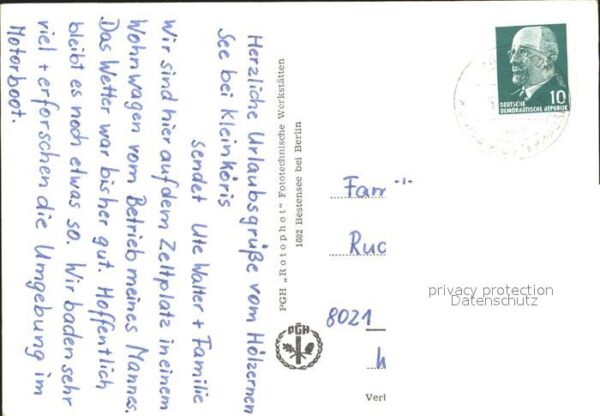 Herzliche Urlaubsgrüße vom Hölzernen
See bei Kleinköris
sendet Ute Walter + Familie
Wir sind hier auf dem Zeltplatz in einem
Wohnwagen vom Betrieb meines Mannes.
Das Wetter war bisher gut. Hoffentlich
bleibt es noch etwas so. Wir baden sehr
viel + erforschen die Umgebung im
Motorboot.
PGH „Rotophot" Fototechnische Werkstätten
1602 Bestensee bei Berlin
PGH
10
DEUTSCHE
DEMOKRATISCHE REPUBLIK
Fam
Rud
privacy protection
Datenschutz
8021
Verl